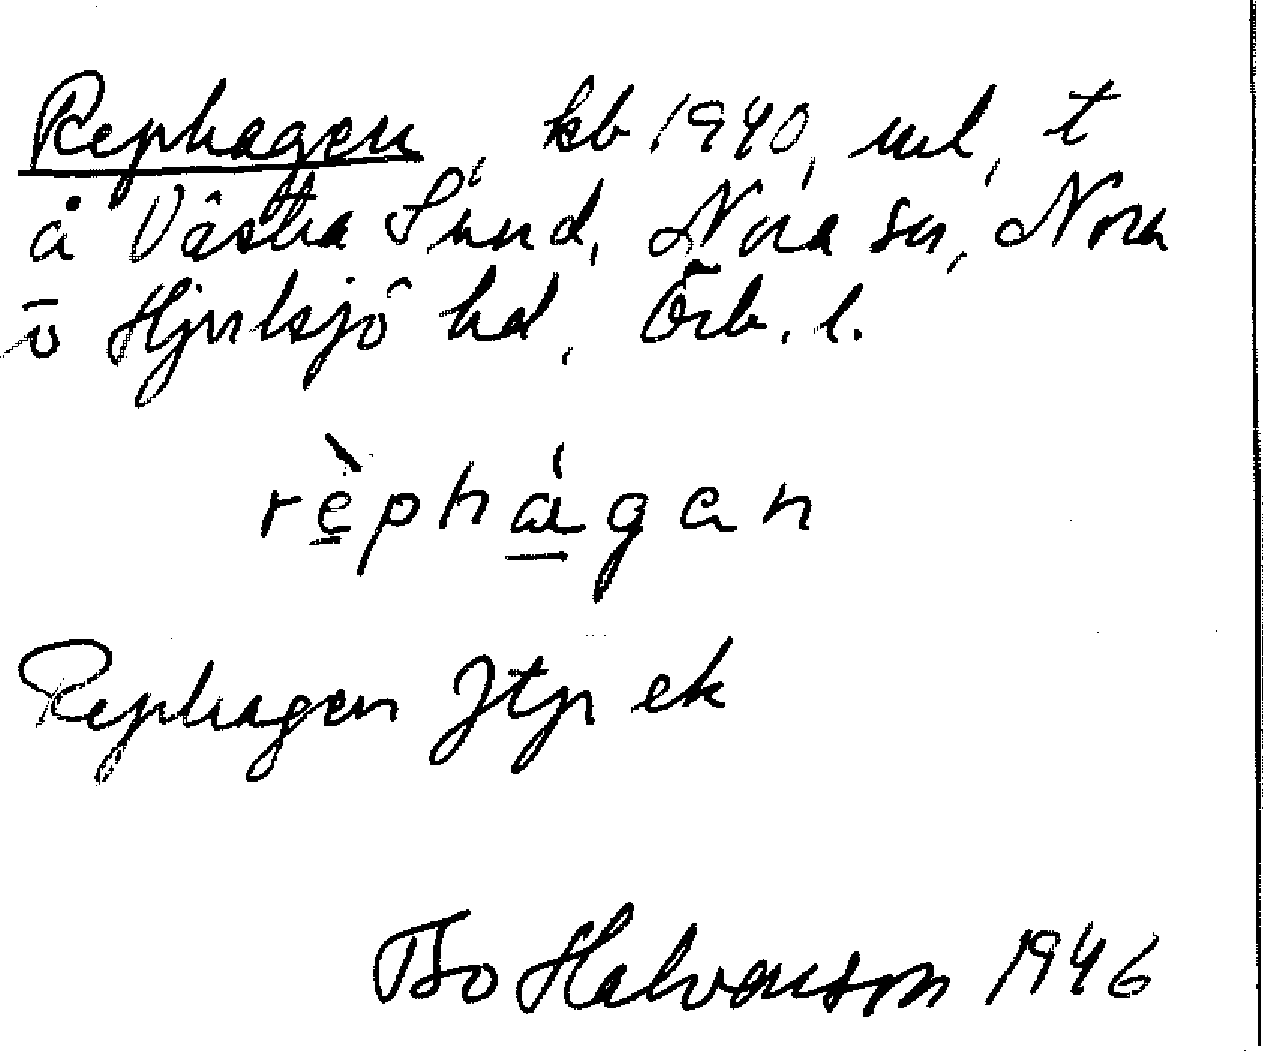 Rephagen, kb 1940, url, t
å Västra Sund, Nora sn, Nora
o Hjulsjö hd, Örb. l.
rèphágan
Rephagen Jtp ek
Bo Halvarson 1946